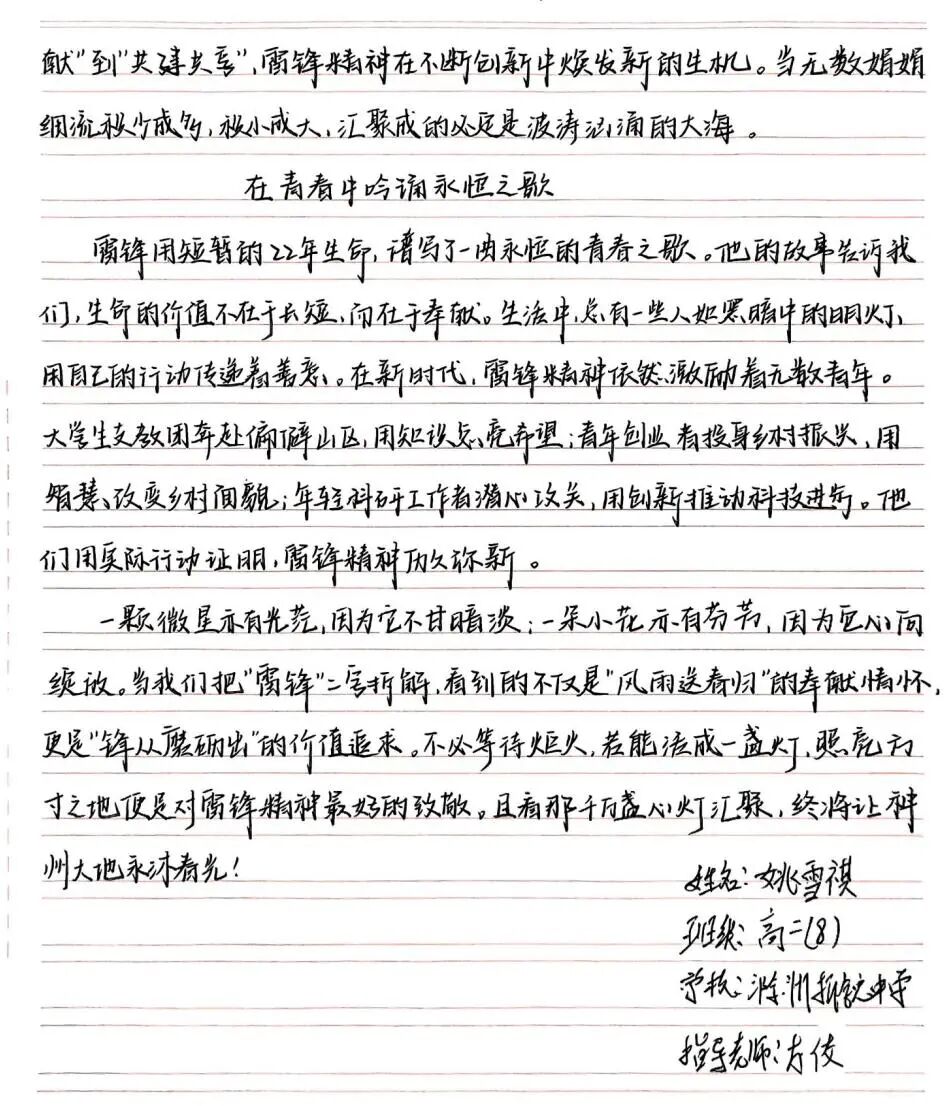 献"到"共建共享",雷锋精神在不断创新中焕发新的生机。当无数娟娟
细流积少成多,积小成大,汇聚成的必定是波涛汹涌的大海。
在青春中吟诵永恒之歌
雷锋用短暂的22年生命,谱写了一曲永恒的青春之歌。他的故事告诉我
们,生命的价值不在于长短,而在于奉献。生活中,总有一些人如黑暗中的明灯,
用自己的行动传递着善意。在新时代,雷锋精神依然激励着无数青年。
大学生支教团奔赴偏僻山区,用知识点亮希望;青年创业者投身乡村振兴,用
智慧改变乡村面貌;年轻科研工作者潜心攻关,用创新推动科技进步。他
们用实际行动证明,雷锋精神历久弥新。
一颗微星亦有光芒,因为它不甘暗淡;一朵小花亦有芬芳,因为它心向
绽放。当我们把"雷锋"二字拆解,看到的不仅是"风雨送春归"的奉献情怀,
更是"锋从磨砺出"的价值追求。不必等待炬火,若能活成一盏灯,照亮方
寸之地便是对雷锋精神最好的致敬。且看那千万盏心灯汇聚,终将让神
州大地永沐春光!
姓名:姚雪祺
班级:高二(8)
学校:滁州中学
指导老师:方俊